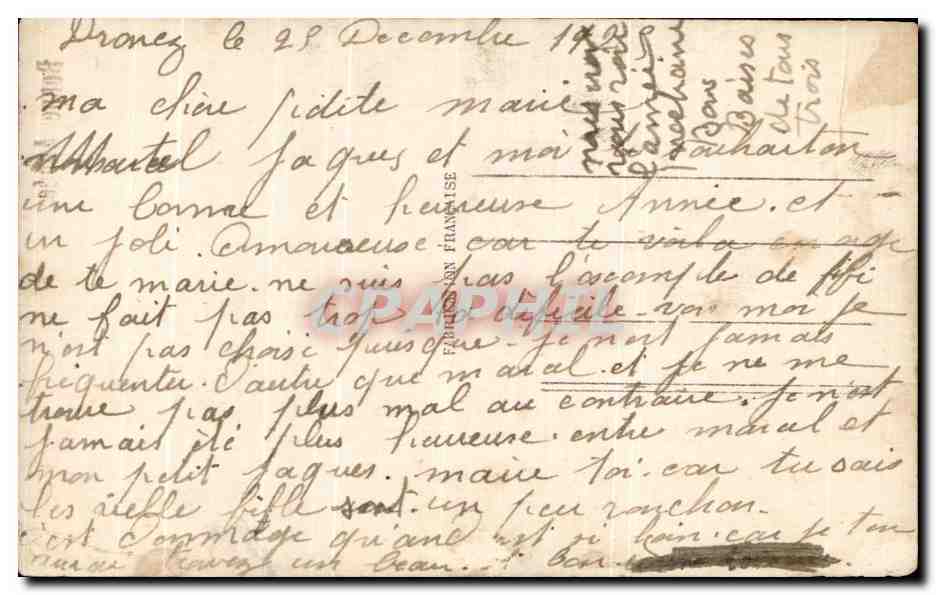 le 25 Decembre
ma chère petite marie
Jaques et moi souhaiton
une bonne et heureuse Année. et
un joli Amoureuse. car te voila en age
de te marie. ne suis pas l'exemple de fifi
ne fait pas trop la dificile. vois moi je
n'est pas choisi puisque je n'est jamais
frequenter d'autre que maral. et je ne me
trouve pas plus mal au contraire. Je n'est
jamait été plus heureuse. entre maral et
mon petit Jaques. marie toi. car tu sais
les vielle fille sont un peu ronchon.
c'est Dommage qu'an est si loin. car je ton
un beau. bon
FABRICATION FRANÇAISE
CPARPHIL
Bons
Baisers
de tous
trois